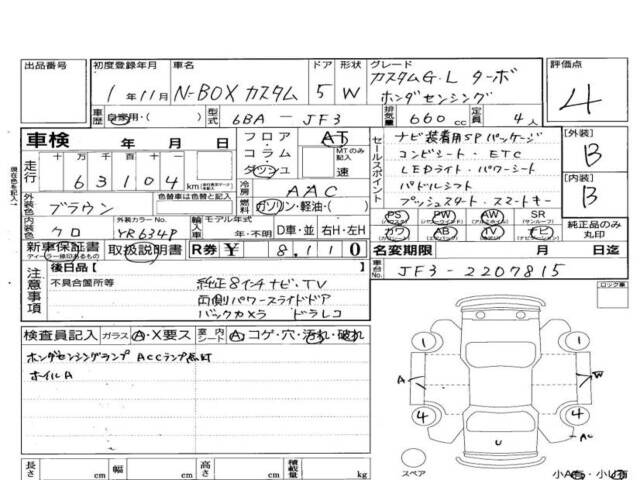 出品番号
初度登録年月 1年11月
車名 N-BOX カスタム
ドア 5
形状 W
グレード カスタムG・L ターボ
ホンダセンシング
評価点 4
車歴 自家用・( )
型式 6BA-JF3
排気量 660cc
定員 4人
車検 年 月 日
フロア AT
コラム MTのみ記入
ダッシュ 速
セールスポイント
ナビ装着用SPパッケージ
コンビシート・ETC
LEDライト・パワーシート
パドルシフト
プッシュスタート・スマートキー
[外装] B
[内装] B
走行 十 万 千 百 十
63104km
冷房 AAC
外装色 ブラウン
色替車は色替と記入
燃料 ガソリン・軽油・( )
内装色 クロ
外装カラーNo. YR634P
輸入車
モデル年式 年・不明
D車・並 右H・左H
PS PW AW SR
カワ AB TV ナビ
純正品のみ丸印
新車保証書
ディーラー捺印あるもの
取扱説明書
R券 ¥ 8,110
名変期限 月 日迄
車台No. JF3-2207815
注意事項
後日品[ ]
不具合箇所等
純正8インチナビ・TV
両側パワースライドドア
バックカメラ ドラレコ
ロック車
検査員記入
ガラス A・X要ス
室内シート A コゲ・穴・汚れ・破れ
ホンダセンシングランプ ACCランプ点灯
ホイルA
1 1
A W
4 4
U
スペア
長さ cm
幅 cm
高さ cm
積載量 kg